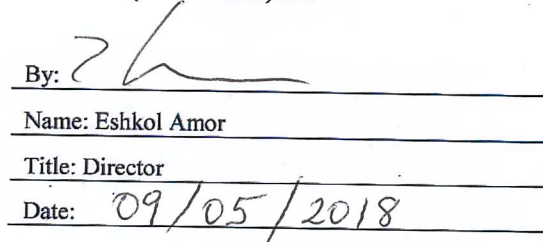 By:
Name: Eshkol Amor
Title: Director
Date: 09/05/2018